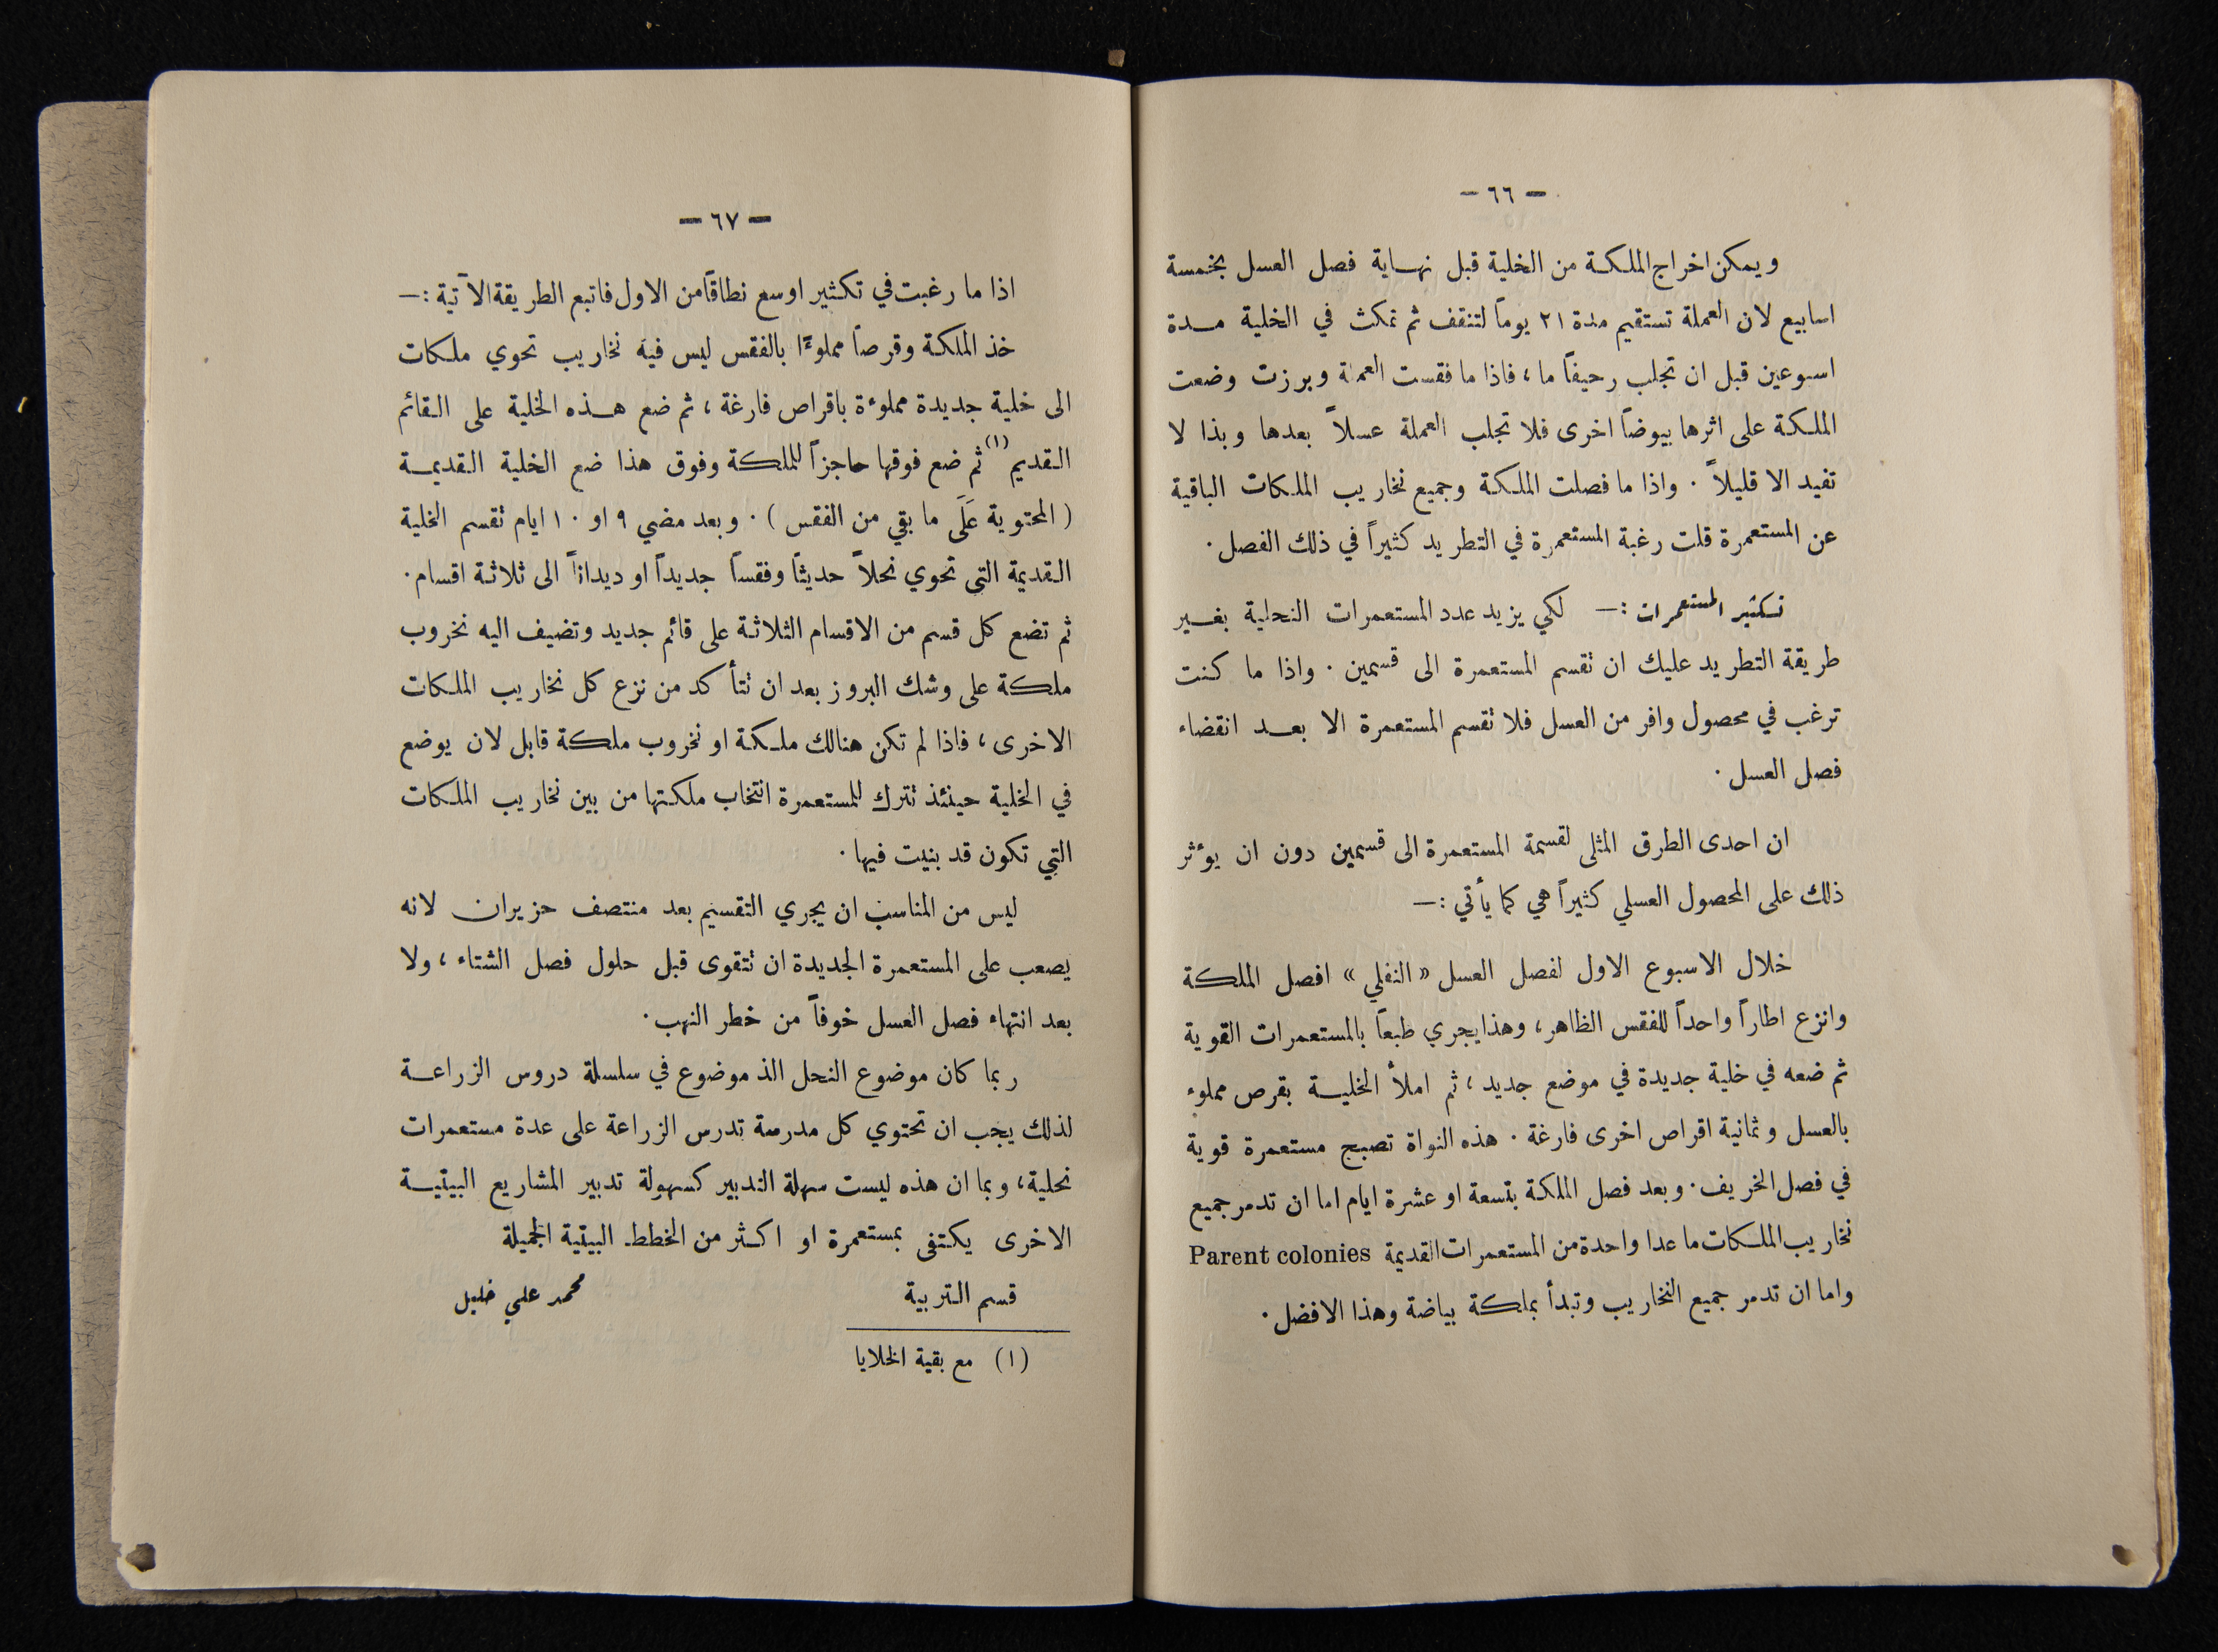 — ٦٦ —
ويمكن اخراج الملكة من الخلية قبل نهاية فصل العسل بخمسة
اسابيع لان العملة تستقيم مدة ٢١ يوماً لتنقف ثم تمكث في الخلية مدة
اسبوعين قبل ان تجلب رحيقاً ما، فاذا ما فقست العملة وبرزت وضعت
الملكة على اثرها بيوضاً اخرى فلا تجلب العملة عسلاً بعدها وبذا لا
تفيد الا قليلاً. واذا ما فصلت الملكة وجميع نخاريب الملكات الباقية
عن المستعمرة قلت رغبة المستعمرة في التطريد كثيراً في ذلك الفصل.
تكثير المستعمرات :— لكي يزيد عدد المستعمرات النحلية بغير
طريقة التطريد عليك ان تقسم المستعمرة الى قسمين. واذا ما كنت
ترغب في محصول وافر من العسل فلا تقسم المستعمرة الا بعد انقضاء
فصل العسل.
ان احدى الطرق المثلى لقسمة المستعمرة الى قسمين دون ان يؤثر
ذلك على المحصول العسلي كثيراً هي كما يأتي :—
خلال الاسبوع الاول لفصل العسل «النفلي» افصل الملكة
وانزع اطاراً واحداً للفقس الظاهر، وهذا يجري طبعاً بالمستعمرات القوية
ثم ضعه في خلية جديدة في موضع جديد، ثم املأ الخلية بقرص مملوء
بالعسل وثمانية اقراص اخرى فارغة. هذه النواة تصبح مستعمرة قوية
في فصل الخريف. وبعد فصل الملكة بتسعة او عشرة ايام اما ان تدمر جميع
نخاريب الملكات ما عدا واحدة من المستعمرات القديمة Parent colonies
واما ان تدمر جميع النخاريب وتبدأ بملكة بياضة وهذا الافضل.
— ٦٧ —
اذا ما رغبت في تكثير اوسع نطاقاً من الاول فاتبع الطريقة الآتية :—
خذ الملكة وقرصاً مملوءًا بالفقس ليس فيه نخاريب تحوي ملكات
الى خلية جديدة مملوءة باقراص فارغة، ثم ضع هذه الخلية على القائم
القديم (١) ثم ضع فوقها حاجزاً للملكة وفوق هذا ضع الخلية القديمة
(المحتوية عَلَى ما بقي من الفقس). وبعد مضي ٩ او ١٠ ايام تقسم الخلية
القديمة التي تحوي نحلاً حديثاً وفقساً جديداً او ديداناً الى ثلاثة اقسام.
ثم تضع كل قسم من الاقسام الثلاثة على قائم جديد وتضيف اليه نخروب
ملكة على وشك البروز بعد ان تتأكد من نزع كل نخاريب الملكات
الاخرى، فاذا لم تكن هنالك ملكة او نخروب ملكة قابل لان يوضع
في الخلية حينئذ تترك للمستعمرة انتخاب ملكتها من بين نخاريب الملكات
التي تكون قد بنيت فيها.
ليس من المناسب ان يجري التقسيم بعد منتصف حزيران لانه
يصعب على المستعمرة الجديدة ان تتقوى قبل حلول فصل الشتاء، ولا
بعد انتهاء فصل العسل خوفاً من خطر النهب.
ربما كان موضوع النحل الذ موضوع في سلسلة دروس الزراعة
لذلك يجب ان تحتوي كل مدرسة تدرس الزراعة على عدة مستعمرات
نحلية، وبما ان هذه ليست سهلة التدبير كسهولة تدبير المشاريع البيتية
الاخرى يكتفى بمستعمرة او اكثر من الخطط البيتية الجميلة
قسم التربية محمد علي خليل
(١) مع بقية الخلايا